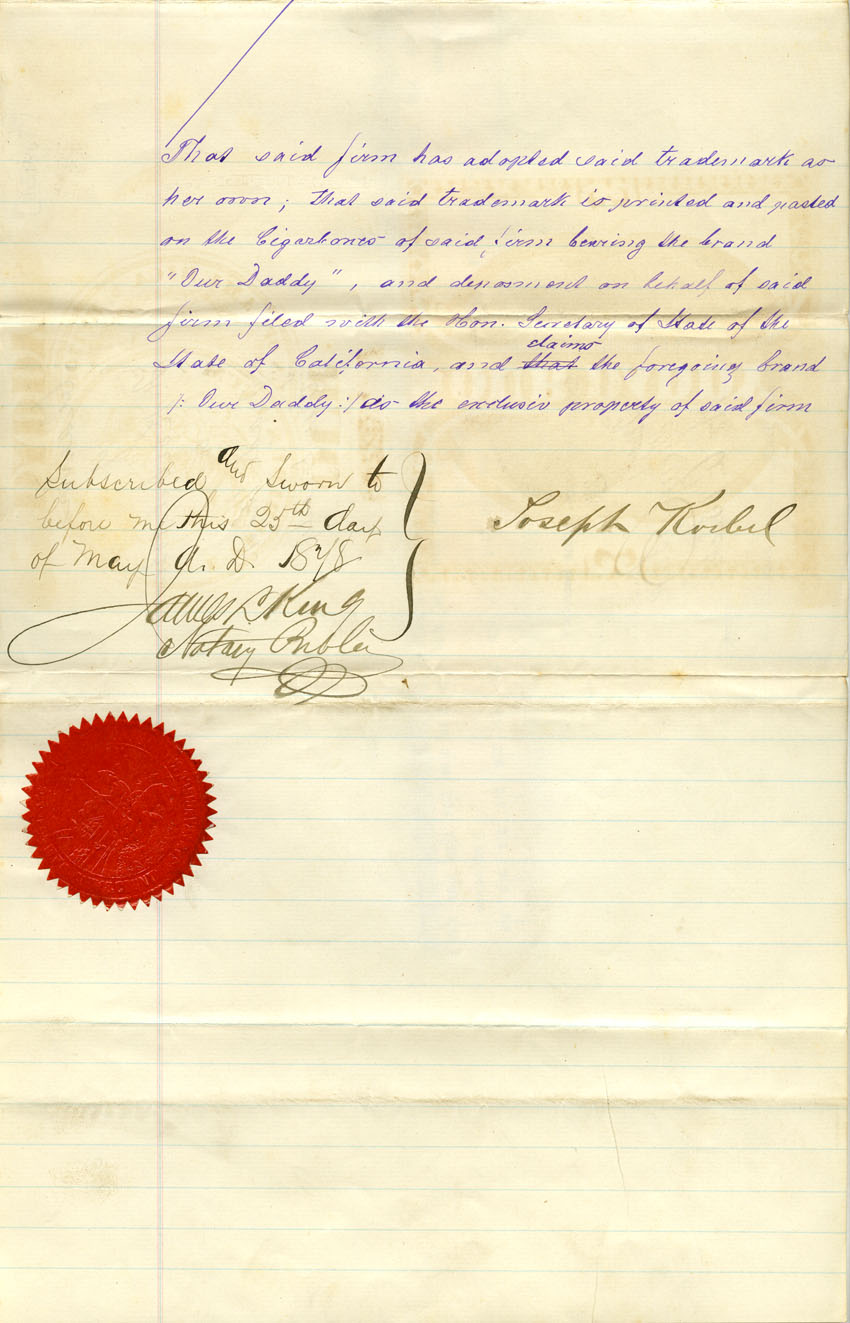 That said firm has adopted said trademark as
her own; that said trademark is printed and pasted
on the Cigarboxes of said firm bearing the brand
"Our Daddy", and deposment on behalf of said
firm filed with the Hon. Secretary of State of the
claims
State of California, and that the foregoing brand
/: Our Daddy :/ as the exclusiv property of said firm
Subscribed and Sworn to
before me this 25th day
of May A. D. 1878
James L King
Notary Public
Joseph Korbel